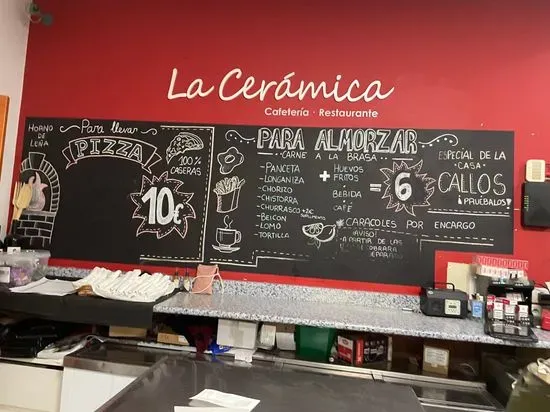 La Cerámica
Cafetería · Restaurante
HORNO DE LEÑA
Para llevar
PIZZA
100% CASERAS
10€
PARA ALMORZAR
CARNE A LA BRASA
PANCETA
LONGANIZA
CHORIZO
CHISTORRA
CHURRASCO +2€ SUPLEMENTO
BEICON
LOMO
TORTILLA
+
HUEVOS FRITOS
BEBIDA
CAFÉ
= 6
ESPECIAL DE LA CASA
CALLOS
¡PRUÉBALOS!
CARACOLES POR ENCARGO
¡AVISO!
A PARTIR DE LAS